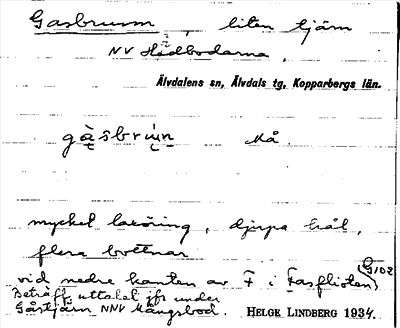 Gasbrunn, liten tjärn
NV Hedbodarna.
Älvdalens sn, Älvdals tg, Kopparbergs län.
gàsbrun Må.
mycket laxöring, djupa hål,
flera bottnar
vid nedre kanten av F i Fasfloten (G102)
Beträff. uttalet jfr under
Gåstjärn NNV Mångsbod. HELGE LINDBERG 1934.